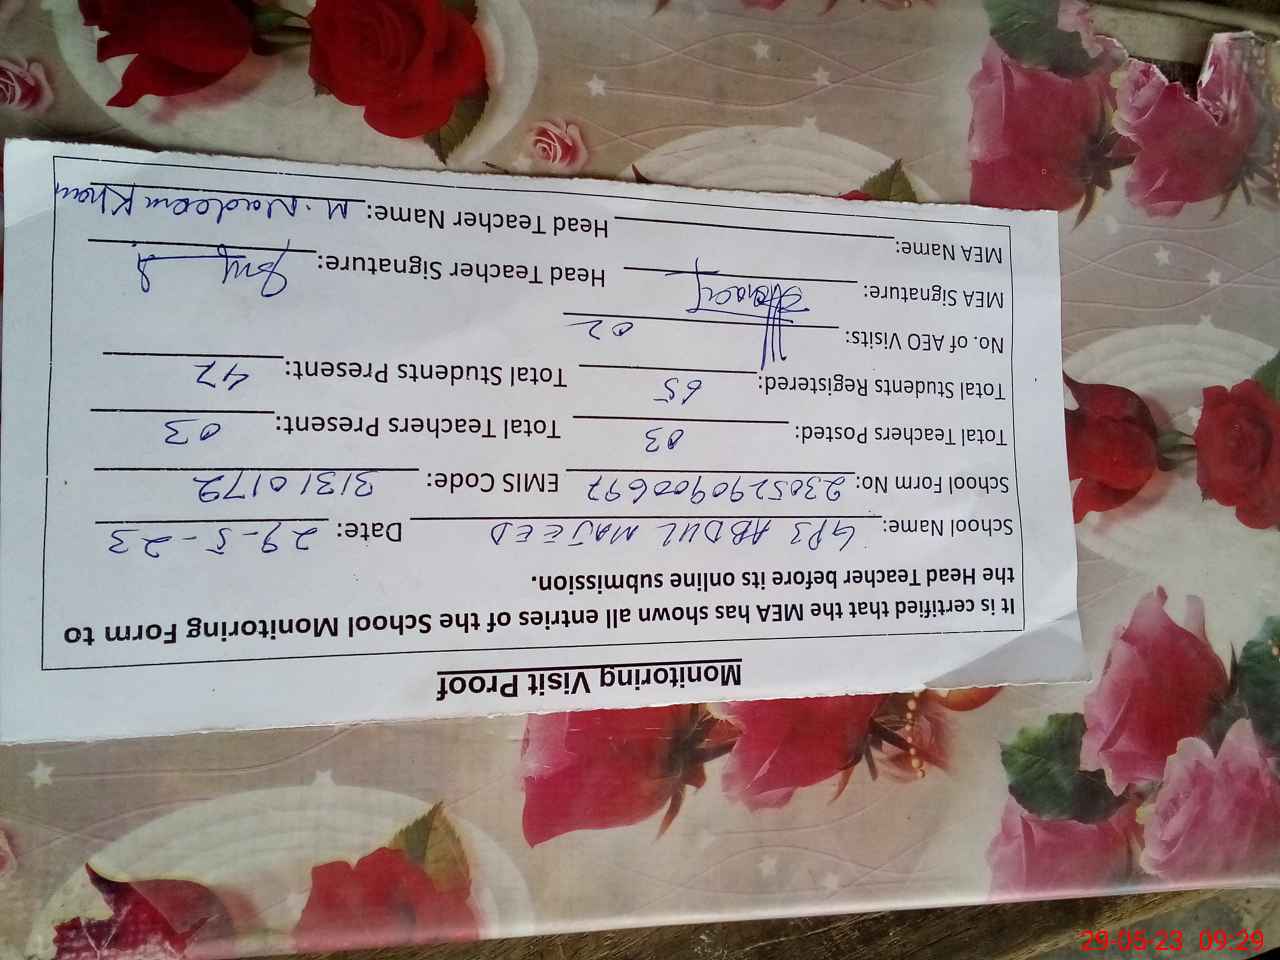 Monitoring Visit Proof
It is certified that the MEA has shown all entries of the School Monitoring Form to
the Head Teacher before its online submission.
School Name: GPS ABDUL MAJEED Date: 29-5-23
School Form No: 2305290900697 EMIS Code: 31310179
Total Teachers Posted: 03 Total Teachers Present: 03
Total Students Registered: 65 Total Students Present: 42
No. of AEO Visits: 02
MEA Signature: Head Teacher Signature:
MEA Name: Head Teacher Name: M. Nadeem Khan
29-05-23 09:29